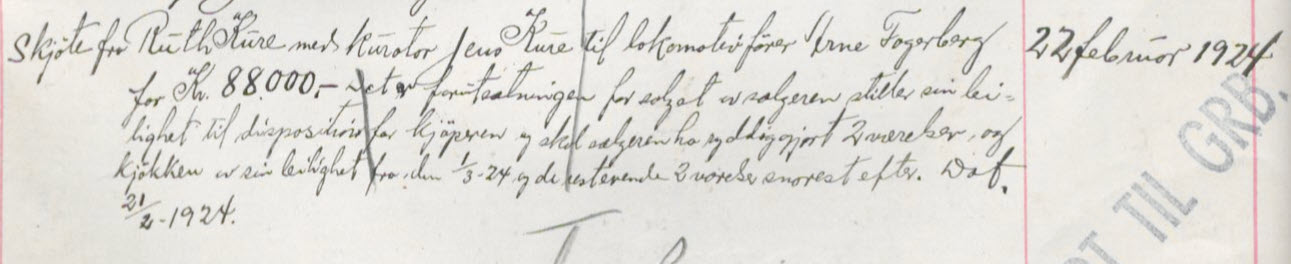 Skjöte fra Ruth Kure med kurator Jens Kure til lokomotivförer Arne Fagerberg 22 februar 1924
for Kr. 88.000,- Det er forutsætningen for salget at sælgeren stiller sin lei=
lighet til disposition for kjöperen og skal sælgeren ha ryddiggjort 2 værelser og
kjökken av sin leilighet fra den 1/3-24 og de resterende 2 værelser snarest efter. Dat.
21/2-1924.
TIL GRB.